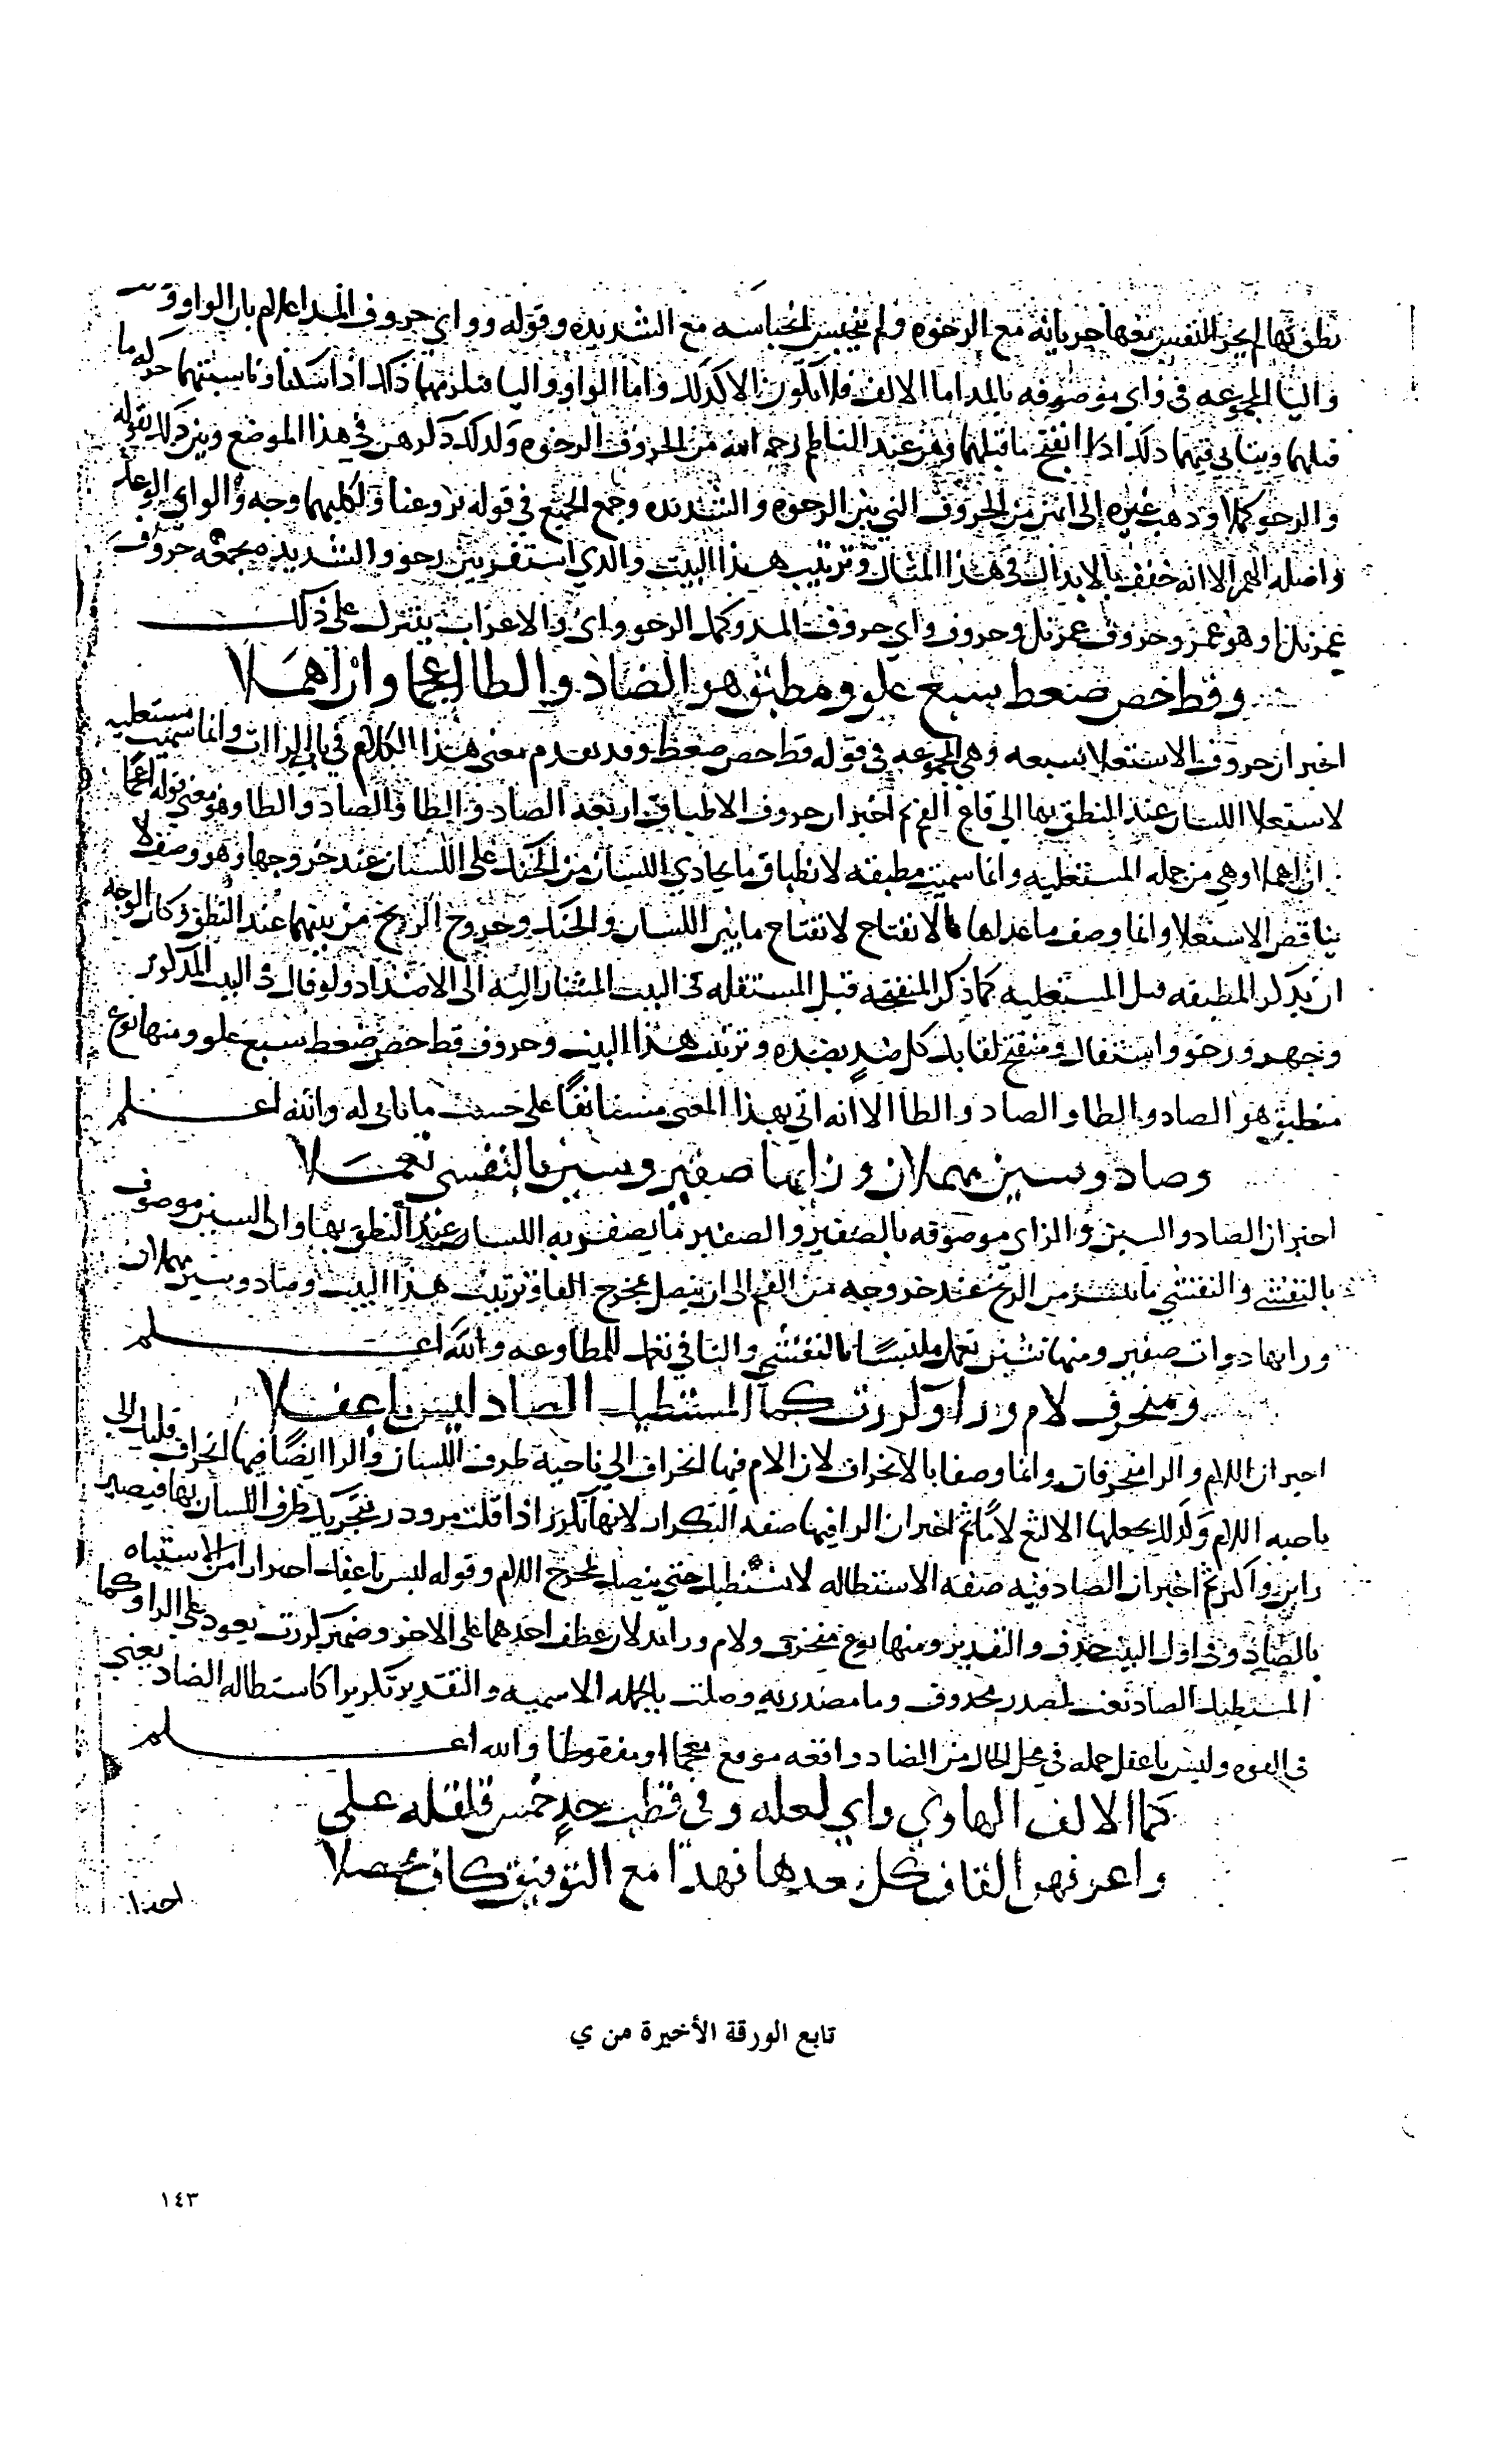 نطق بها لم يجر النفس معها جريانه مع الرخوه ولم ينحبس انحباسه مع الشديده وقوله وواي حروف المد اعلام بان الواو
واليا المجموعه في واي موصوفه بالمد اما الالف فلا تكون الا كذلك واما الواو واليا فيلزمهما ذلك اذا سكنا وناسبتهما حركه ما
قبلهما ويتاتي فيهما ذلك اذا انفتح ما قبلهما وهن عند الناظم رحمه الله من الحروف الرخوه ولذلك ذكرهن في هذا الموضع وبين ذلك بقوله
والرخو كملا وذهب غيره الى انهن من الحروف التي بين الرخوه والشديده وجمع الجميع في قوله لم يروعنا ولكليهما وجه والواي الوعد
واصله الهمز الا انه خفف بالابدال في هذا المثال وترتيب هذا البيت والذي استقر بين رخو والشديده يجمعه حروف
عمرنل وهو عمر وحروف عمرنل وحروف واي حروف المد وكمل الرخو واي والاعراب يتنزل على ذلك
وقظ خص ضغط سبع علو ومطبق هو الضاد والظا اعجما وان اهملا
اخبر ان حروف الاستعلا سبعه وهي المجموعه في قوله قظ خص ضغط وقد تقدم معنى هذا الكلام في باب الراات وانما سميت مستعليه
لاستعلا اللسان عند النطق بها الى قاع الفم ثم اخبر ان حروف الاطباق اربعه الصاد والظا والضاد والطا وهو معنى قوله اعجما
ان اهملا وهي من جمله المستعليه وانما سميت مطبقه لانطباق ما يحاذي اللسان من الحنك على اللسان عند خروجها وهو وصف لا
يناقض الاستعلا وانما وصف ما عداها بالانفتاح لانفتاح ما بين اللسان والحنك وخروج الريح من بينهما عند النطق وكان الوجه
ان يذكر المطبقه قبل المستعليه كما ذكر المنفتحه قبل المستفله في البيت المشار اليه الى الاضداد ولو قال في البيت المذكور
وجهر ورخو واستفال ومنفتح لقابل كل ضد بضده وترتيب هذا البيت وحروف قظ خص ضغط سبع علو ومنها نوع
منطبق هو الضاد والظا والصاد والطا الا انه اتى بهذا المعنى مستانفا على حسب ما تاتى له والله اعلم
وصاد وسين مهملان وزايها صفير وشين بالتفشي تعملا
اخبر ان الصاد والسين والزاي موصوفه بالصفير والصفير ما يصفر به اللسان عند النطق بها وان الشين موصوف
بالتفشي والتفشي ما ينتشر من الريح عند خروجه من الفم الى ان يتصل بمخرج الفا وترتيب هذا البيت وصاد وسين مهملان
وزايها ذوات صفير ومنها شين تعمل ملتبسا بالتفشي والتا في تعمل للمطاوعه والله اعلم
ومنحرف لام ورا وكررت كما المستطيل الضاد ليس باغفلا
اخبر ان اللام والرا منحرفان وانما وصفا بالانحراف لان الام فيها انحراف الى ناحية طرف اللسان والرا ايضا فيها انحراف قليل الى
ناحيه اللام ولذلك يجعلها الالثغ لاما ثم اخبر ان الرا فيها صفه التكرار لانها تكرر اذا قلت مر ودر بتحريك طرف اللسان بها فيصير
رابن واكثر ثم اخبر ان الضاد فيه صفه الاستطاله لاستطيل حتى يتصل بمخرج اللام وقوله ليس باغفلا احترازا من الاشتباه
بالصاد وفي اول البيت حذف والتقدير ومنها نوع منحرف ولام ورا بدلان عطف احدهما على الاخر وضمير كررت يعود على الرا وكما
المستطيل الضاد نعت لمصدر محذوف وما مصدريه وصلت بالجمله الاسميه والتقدير تكريرا كاستطاله الضاد يعني
في القوه وليس باغفل جمله في محل الحال من الضاد واقعه موقع معجما او منقوطا والله اعلم
كما الالف الهاوي واي لعله وفي قطب جد خمس قلقله على
واعرفهن القاف كل يعدها فهذا مع التوفيق كاف محصلا
اخبر ان
تابع الورقة الأخيرة من ي
١٤٣